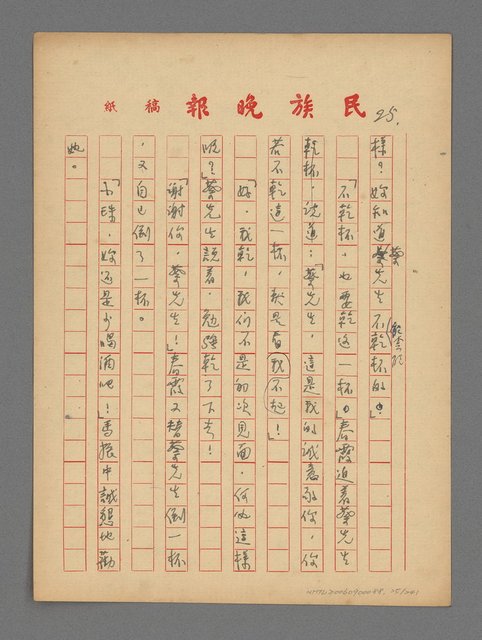 民族晚報 稿紙
25.
樣？妳知道蔡先生不乾杯的。」
「不乾杯，也要乾這一杯。」春霞迫着蔡先生
乾杯，說道：「蔡先生，這是我的誠意敬你，你
若不乾這一杯，就是看我不起！」
「好，我乾，我們不是初次見面，何必這樣
呢？」蔡先生說着，勉強乾了下去！
「謝謝你，蔡先生！」春霞又替蔡先生倒一杯
，又自己倒了一杯。
「太珠，妳還是少喝酒吧！」馬振中誠懇地勸
她。
NMTL20060900088. 25/241